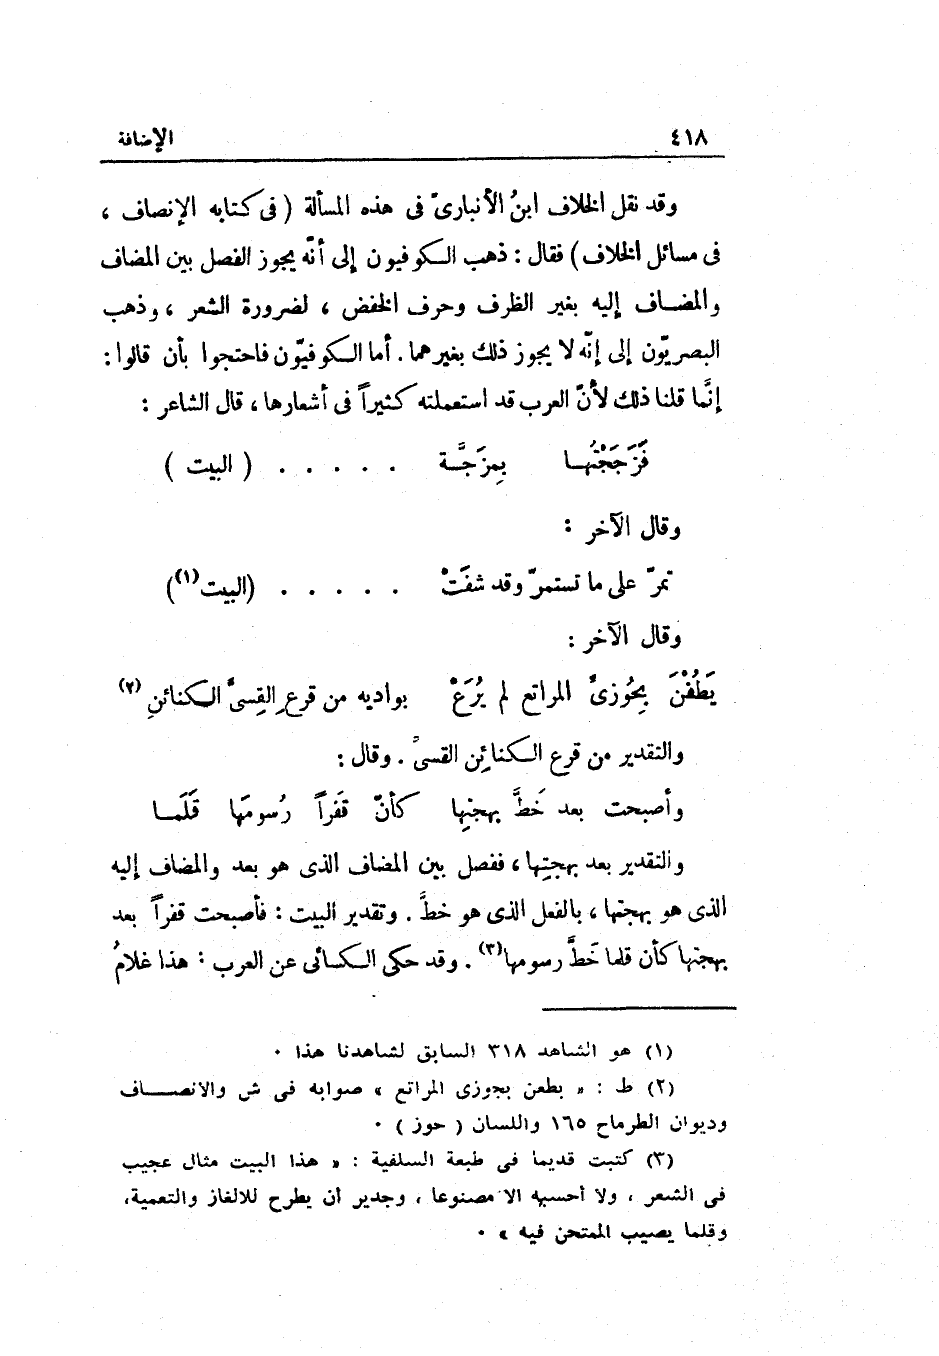 ٤١٨ الإضافة
وقد نقل الخلاف ابنُ الأنبارىّ فى هذه المسألة (فى كتابه الإنصاف ،
فى مسائل الخلاف) فقال : ذهب الكوفيون إلى أنّه يجوز الفصل بين المضاف
والمضاف إليه بغير الظرف وحرف الخفض ، لضرورة الشعر ، وذهب
البصريّون إلى إنّه لا يجوز ذلك بغيرهما . أما الكوفيّون فاحتجوا بأن قالوا :
إنَّما قلنا ذلك لأنّ العرب قد استعملته كثيراً فى أشعارها ، قال الشاعر :
فَزَجَجْتُهَا بِمزَجَّة . . . . . ( البيت )
وقال الآخر :
تمرّ على ما تستمرّ وقد شفَتْ . . . . . (البيت(١))
وقال الآخر :
يَطُفْنَ بِحُوزىِّ المراتع لم يُرَعْ بواديه من قرعِ القِسىَّ الكنائنِ (٢)
والتقدير من قرع الكنائِن القسىَّ . وقال :
وأصبحت بعد خَطَّ بهجتِها كأنّ قَفراً رُسومَها قَلَمَا
والتقدير بعد بهجتِها ، ففصل بين المضاف الذى هو بعد والمضاف إليه
الذى هو بهجتها ، بالفعل الذى هو خطَّ . وتقدير البيت : فأصبحت قفراً بعد
بهجتها كأن قلما خَطَّ رسومها(٣) . وقد حكى الكسائى عن العرب : هذا غلامُ
(١) هو الشاهد ٣١٨ السابق لشاهدنا هذا .
(٢) ط : « يطعن بجوزى المراتع » صوابه فى ش والانصاف
وديوان الطرماح ١٦٥ واللسان ( حوز ) .
(٣) كتبت قديما فى طبعة السلفية : « هذا البيت مثال عجيب
فى الشعر ، ولا أحسبه الا مصنوعا ، وجدير أن يطرح للالغاز والتعمية،
وقلما يصيب الممتحن فيه » .